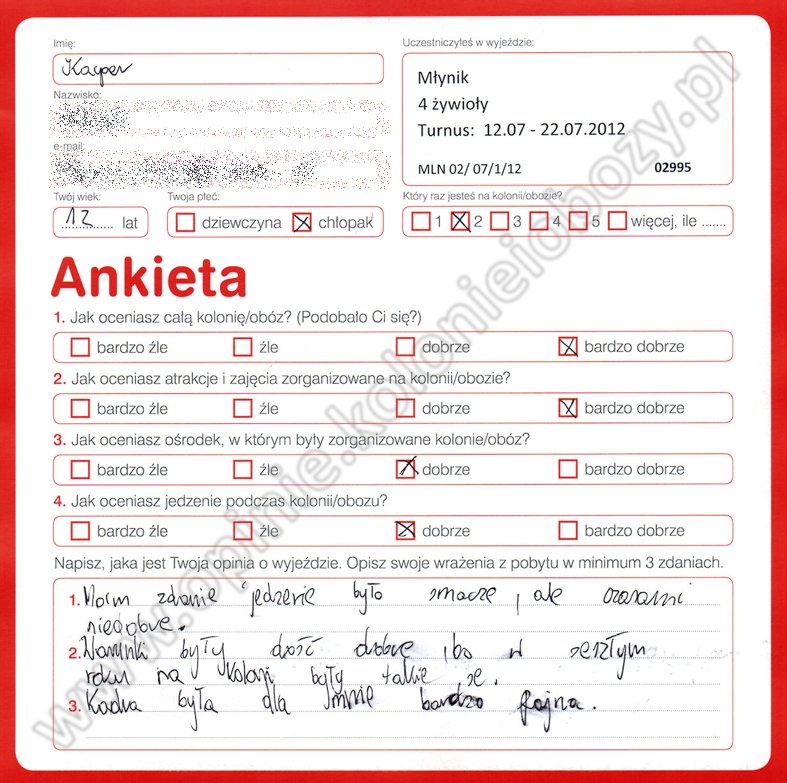 Imię:
Kacper
Nazwisko:
e-mail:
Twój wiek:
12 lat
Twoja płeć:
dziewczyna chłopak
Uczestniczyłeś w wyjeździe:
Młynik
4 żywioły
Turnus: 12.07 - 22.07.2012
MLN 02/ 07/1/12 02995
Który raz jesteś na kolonii/obozie?
1 2 3 4 5 więcej, ile .......
Ankieta
1. Jak oceniasz całą kolonię/obóz? (Podobało Ci się?)
bardzo źle źle dobrze bardzo dobrze
2. Jak oceniasz atrakcje i zajęcia zorganizowane na kolonii/obozie?
bardzo źle źle dobrze bardzo dobrze
3. Jak oceniasz ośrodek, w którym były zorganizowane kolonie/obóz?
bardzo źle źle dobrze bardzo dobrze
4. Jak oceniasz jedzenie podczas kolonii/obozu?
bardzo źle źle dobrze bardzo dobrze
Napisz, jaka jest Twoja opinia o wyjeździe. Opisz swoje wrażenia z pobytu w minimum 3 zdaniach.
1. Moim zdanie jedzenie było smacze, ale czasami
niedobre.
2. Warunki były dość dobre, bo w zeszłym
roku na Koloni były takie se.
3. Kadra była dla mnie bardzo fajna.
www.opinie.kolonieiobozy.pl